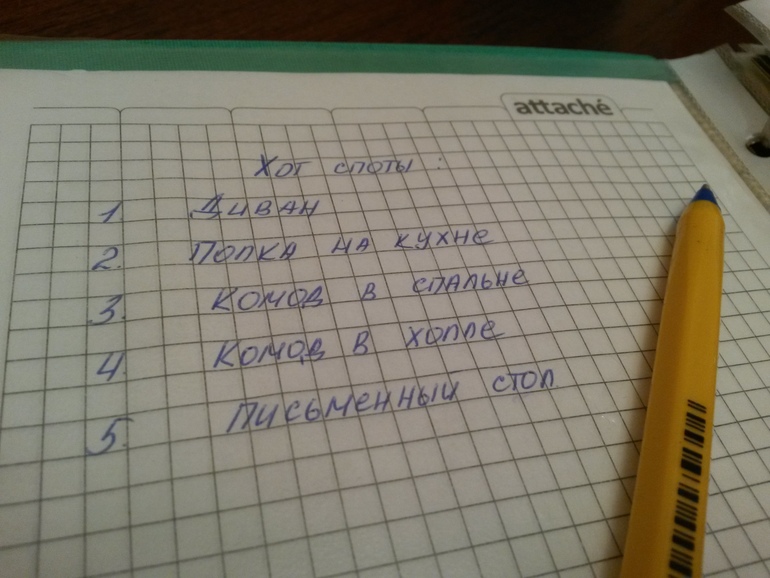 attaché
Хот споты:
1 Диван
2. Полка на кухне
3. Комод в спальне
4. Комод в холле
5. Письменный стол